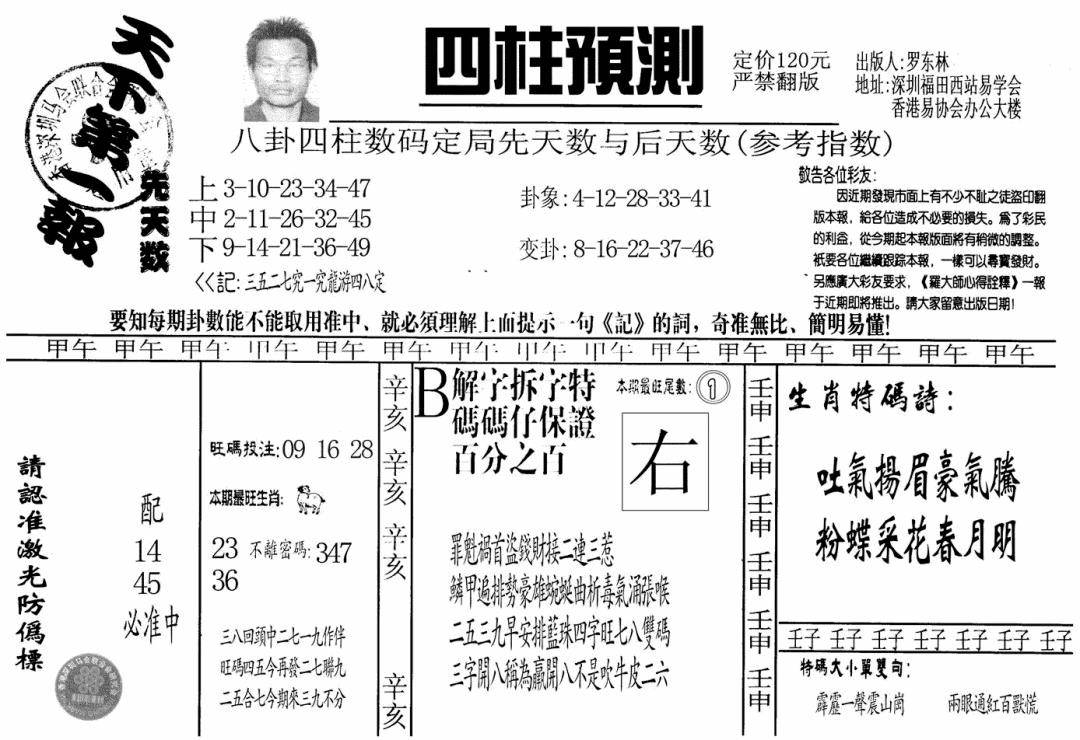 天下第一報
四柱預測
定价120元
严禁翻版
出版人:罗东林
地址:深圳福田西站易学会
香港易协会办公大楼
八卦四柱数码定局先天数与后天数(参考指数)
先天数
上 3-10-23-34-47
中 2-11-26-32-45
下 9-14-21-36-49
<<記:三五二七究一究龍游四八定
卦象:4-12-28-33-41
变卦:8-16-22-37-46
敬告各位彩友:
因近期發現市面上有不少不恥之徒盜印翻
版本報，給各位造成不必要的損失。爲了彩民
的利益，從今期起本報版面將有稍微的調整。
衹要各位繼續跟踪本報，一樣可以尋寶發財。
另應廣大彩友要求，《羅大師心得詮釋》一報
于近期即將推出。請大家留意出版日期!
要知每期卦數能不能取用准中、就必須理解上面提示一句《記》的詞，奇准無比、簡明易懂!
甲午 甲午 甲午 甲午 甲午 甲午 甲午 甲午 甲午 甲午 甲午 甲午 甲午 甲午 甲午
請認准激光防僞標
配
14
45
必准中
旺碼投注:09 16 28
本期最旺生肖:
23 不離密碼:347
36
三八回頭中二七一九作伴
旺碼四五今再發二七聯九
二五合七今期來三九不分
辛亥 辛亥 辛亥 辛亥
B
解字拆字特
碼碼仔保證
百分之百
本期最旺尾數:①
右
罪魁禍首盜錢財接二連三惹
鱗甲遍排勢豪雄蜿蜒曲析毒氣涌張喉
二五三九早安排藍珠四字旺七八雙碼
三字開八稱為贏開八不是吹牛皮二六
壬申 壬申 壬申 壬申 壬申 壬申
生肖特碼詩:
吐氣揚眉豪氣騰
粉蝶采花春月明
壬子 壬子 壬子 壬子 壬子 壬子 壬子
特碼大小單雙句:
霹靂一聲震山崗 兩眼通紅百獸慌